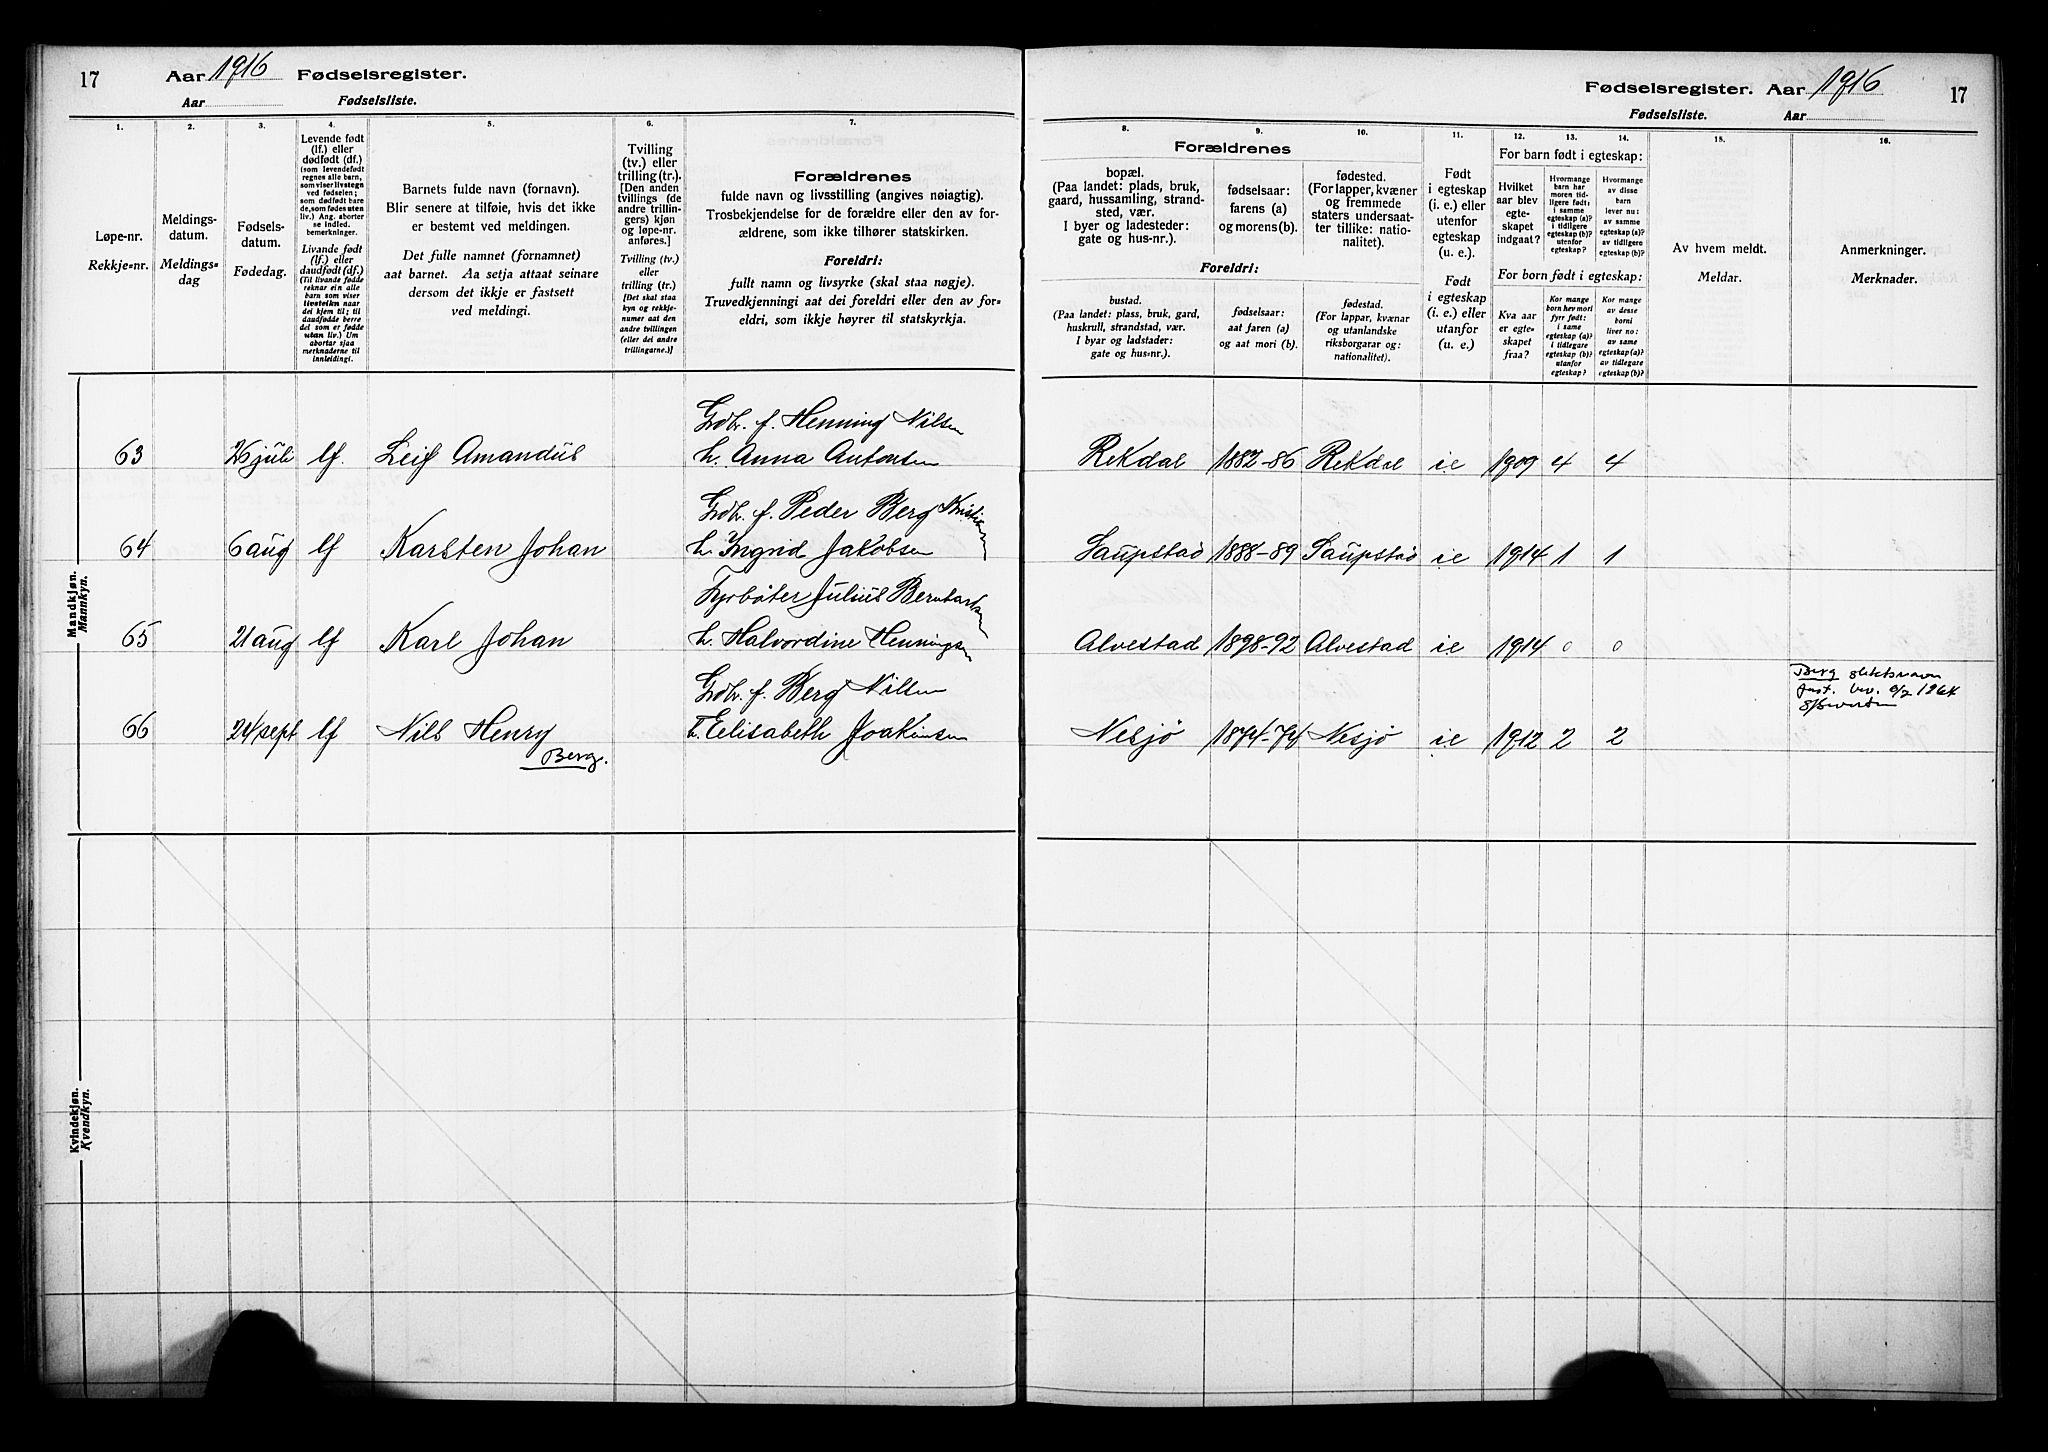 17
Aar 1916 Fødselsregister.
Aar Fødselsliste.
1.
2.
3.
4.
5.
6.
7.
Løpe-nr.
Rekkje=nr.
Meldings-
datum.
Meldings=
dag
Fødsels-
datum.
Fødedag.
Levende født
(lf.) eller
dødfødt (df.)
(som levendefødt
regnes alle barn,
som viser livstegn
ved fødselen;
som dødfødt bare
de, som fødes uten
liv.) Ang. aborter
se indled.
bemerkninger.
Livande født
(lf.) eller
daudfødt (df.)
(Til livande fødde
reknar ein alle
barn som viser
livsteikn naar
dei kjem til; til
daudfødde berre
dei som er fødde
utan liv.) Um
abortar sjaa
merknaderne til
innleidingi.
Barnets fulde navn (fornavn).
Blir senere at tilføie, hvis det ikke
er bestemt ved meldingen.
Det fulle namnet (fornamnet)
aat barnet. Aa setja attaat seinare
dersom det ikkje er fastsett
ved meldingi.
Tvilling
(tv.) eller
trilling (tr.).
[Den anden
tvillings (de
andre trillin-
gers) kjøn
og løpe-nr.
anføres.]
Tvilling (tv.)
eller
trilling (tr.)
[Det skal staa
kyn og rekkje-
numer aat den
andre tvillingen
(eller dei andre
trillingarne.)]
Forældrenes
fulde navn og livsstilling (angives nøiagtig).
Trosbekjendelse for de forældre eller den av for-
ældrene, som ikke tilhører statskirken.
Foreldri:
fullt namn og livsyrke (skal staa nøgje).
Truvedkjenningi aat dei foreldri eller den av for=
eldri, som ikkje høyrer til statskyrkja.
Mandkjøn.
Mannkyn.
Gdbr. f. Henning Nilsen
63 26 juli lf. Leif Amandus h. Anna Antonsen
Gdbr. f. Peder Berg Kristiansen
64 6 aug lf Karsten Johan h. Ingrid Jakobsen
Fyrbøter Julius Bernhardsen
65 21 aug lf Karl Johan h. Halvordine Henningsen
Gdbr. f. Berg Nilsen
66 24 sept lf Nils Henry h. Elisabeth Joakimsen
Berg.
Kvindekjøn.
Kvendkyn.
Fødselsregister. Aar 1916
17
Fødselsliste. Aar
8.
9.
10.
11.
12.
13.
14.
15.
16.
Forældrenes
bopæl.
(Paa landet: plads, bruk,
gaard, hussamling, strand-
sted, vær.
I byer og ladesteder:
gate og hus-nr.).
fødselsaar:
farens (a)
og morens (b).
fødested.
(For lapper, kvæner
og fremmede
staters undersaat-
ter tillike: natio-
nalitet).
Foreldri:
bustad.
(Paa landet: plass, bruk, gard,
huskrull, strandstad, vær.
I byar og ladstader:
gate og hus=nr.).
fødselsaar:
aat faren (a)
og aat mori (b).
fødestad.
(For lappar, kvænar
og utanlandske
riksborgarar og:
nationalitet).
Født
i egteskap
(i. e.) eller
utenfor
egteskap
(u. e.).
Født
i egteskap
(i. e.) eller
utanfor
(u. e.).
For barn født i egteskap:
Hvilket
aar blev
egte-
skapet
indgaat?
Hvormange
barn har
moren tid-
ligere født:
i samme
egteskap (a)?
i tidligere
egteskap (b)?
utenfor
egteskap?
Hvormange
av disse
barn
lever nu:
av samme
egteskap (a)?
av tidligere
egteskap (b)?
For born født i egteskap:
Kva aar
er egte-
skapet
fraa?
Kor mange
born hev mori
fyrr født:
i same
egteskap (a)?
i tidlegare
egteskap (b)?
utanfor
egteskap?
Kor mange
av desse
borni
liver no:
av same
egteskap (a)?
av tidlegare
egteskap (b)?
Av hvem meldt.
Meldar.
Anmerkninger.
Merknader.
Rekdal 1882-86 Rekdal i.e 1909 4 4
Saupstad 1888-89 Saupstad i.e 1914 1 1
Alvestad 1898-92 Alvestad i.e 1914 0 0
Berg slektsnavn
Nesjø 1874-74 Nesjø i.e 1912 2 2